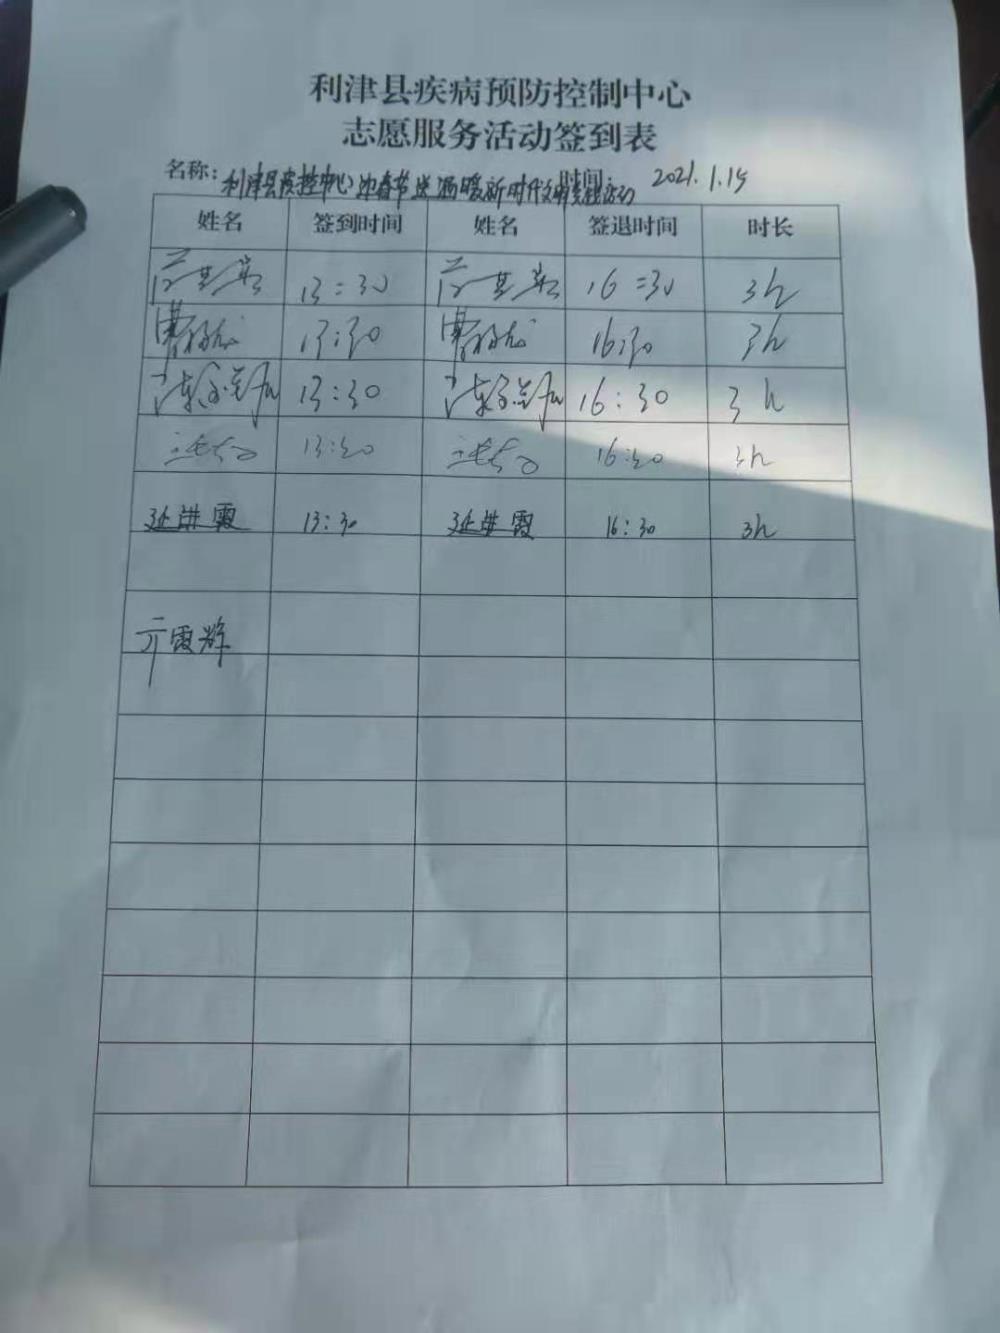 利津县疾病预防控制中心
志愿服务活动签到表
名称：利津县疾控中心迎春节送温暖新时代文明实践活动 时间： 2021.1.15
姓名 签到时间 姓名 签退时间 时长
13:30 16:30 3h
曹 13:30 曹 16:30 3h
13:30 16:30 3h
13:30 16:30 3h
延洪霞 13:30 延洪霞 16:30 3h
亓霞